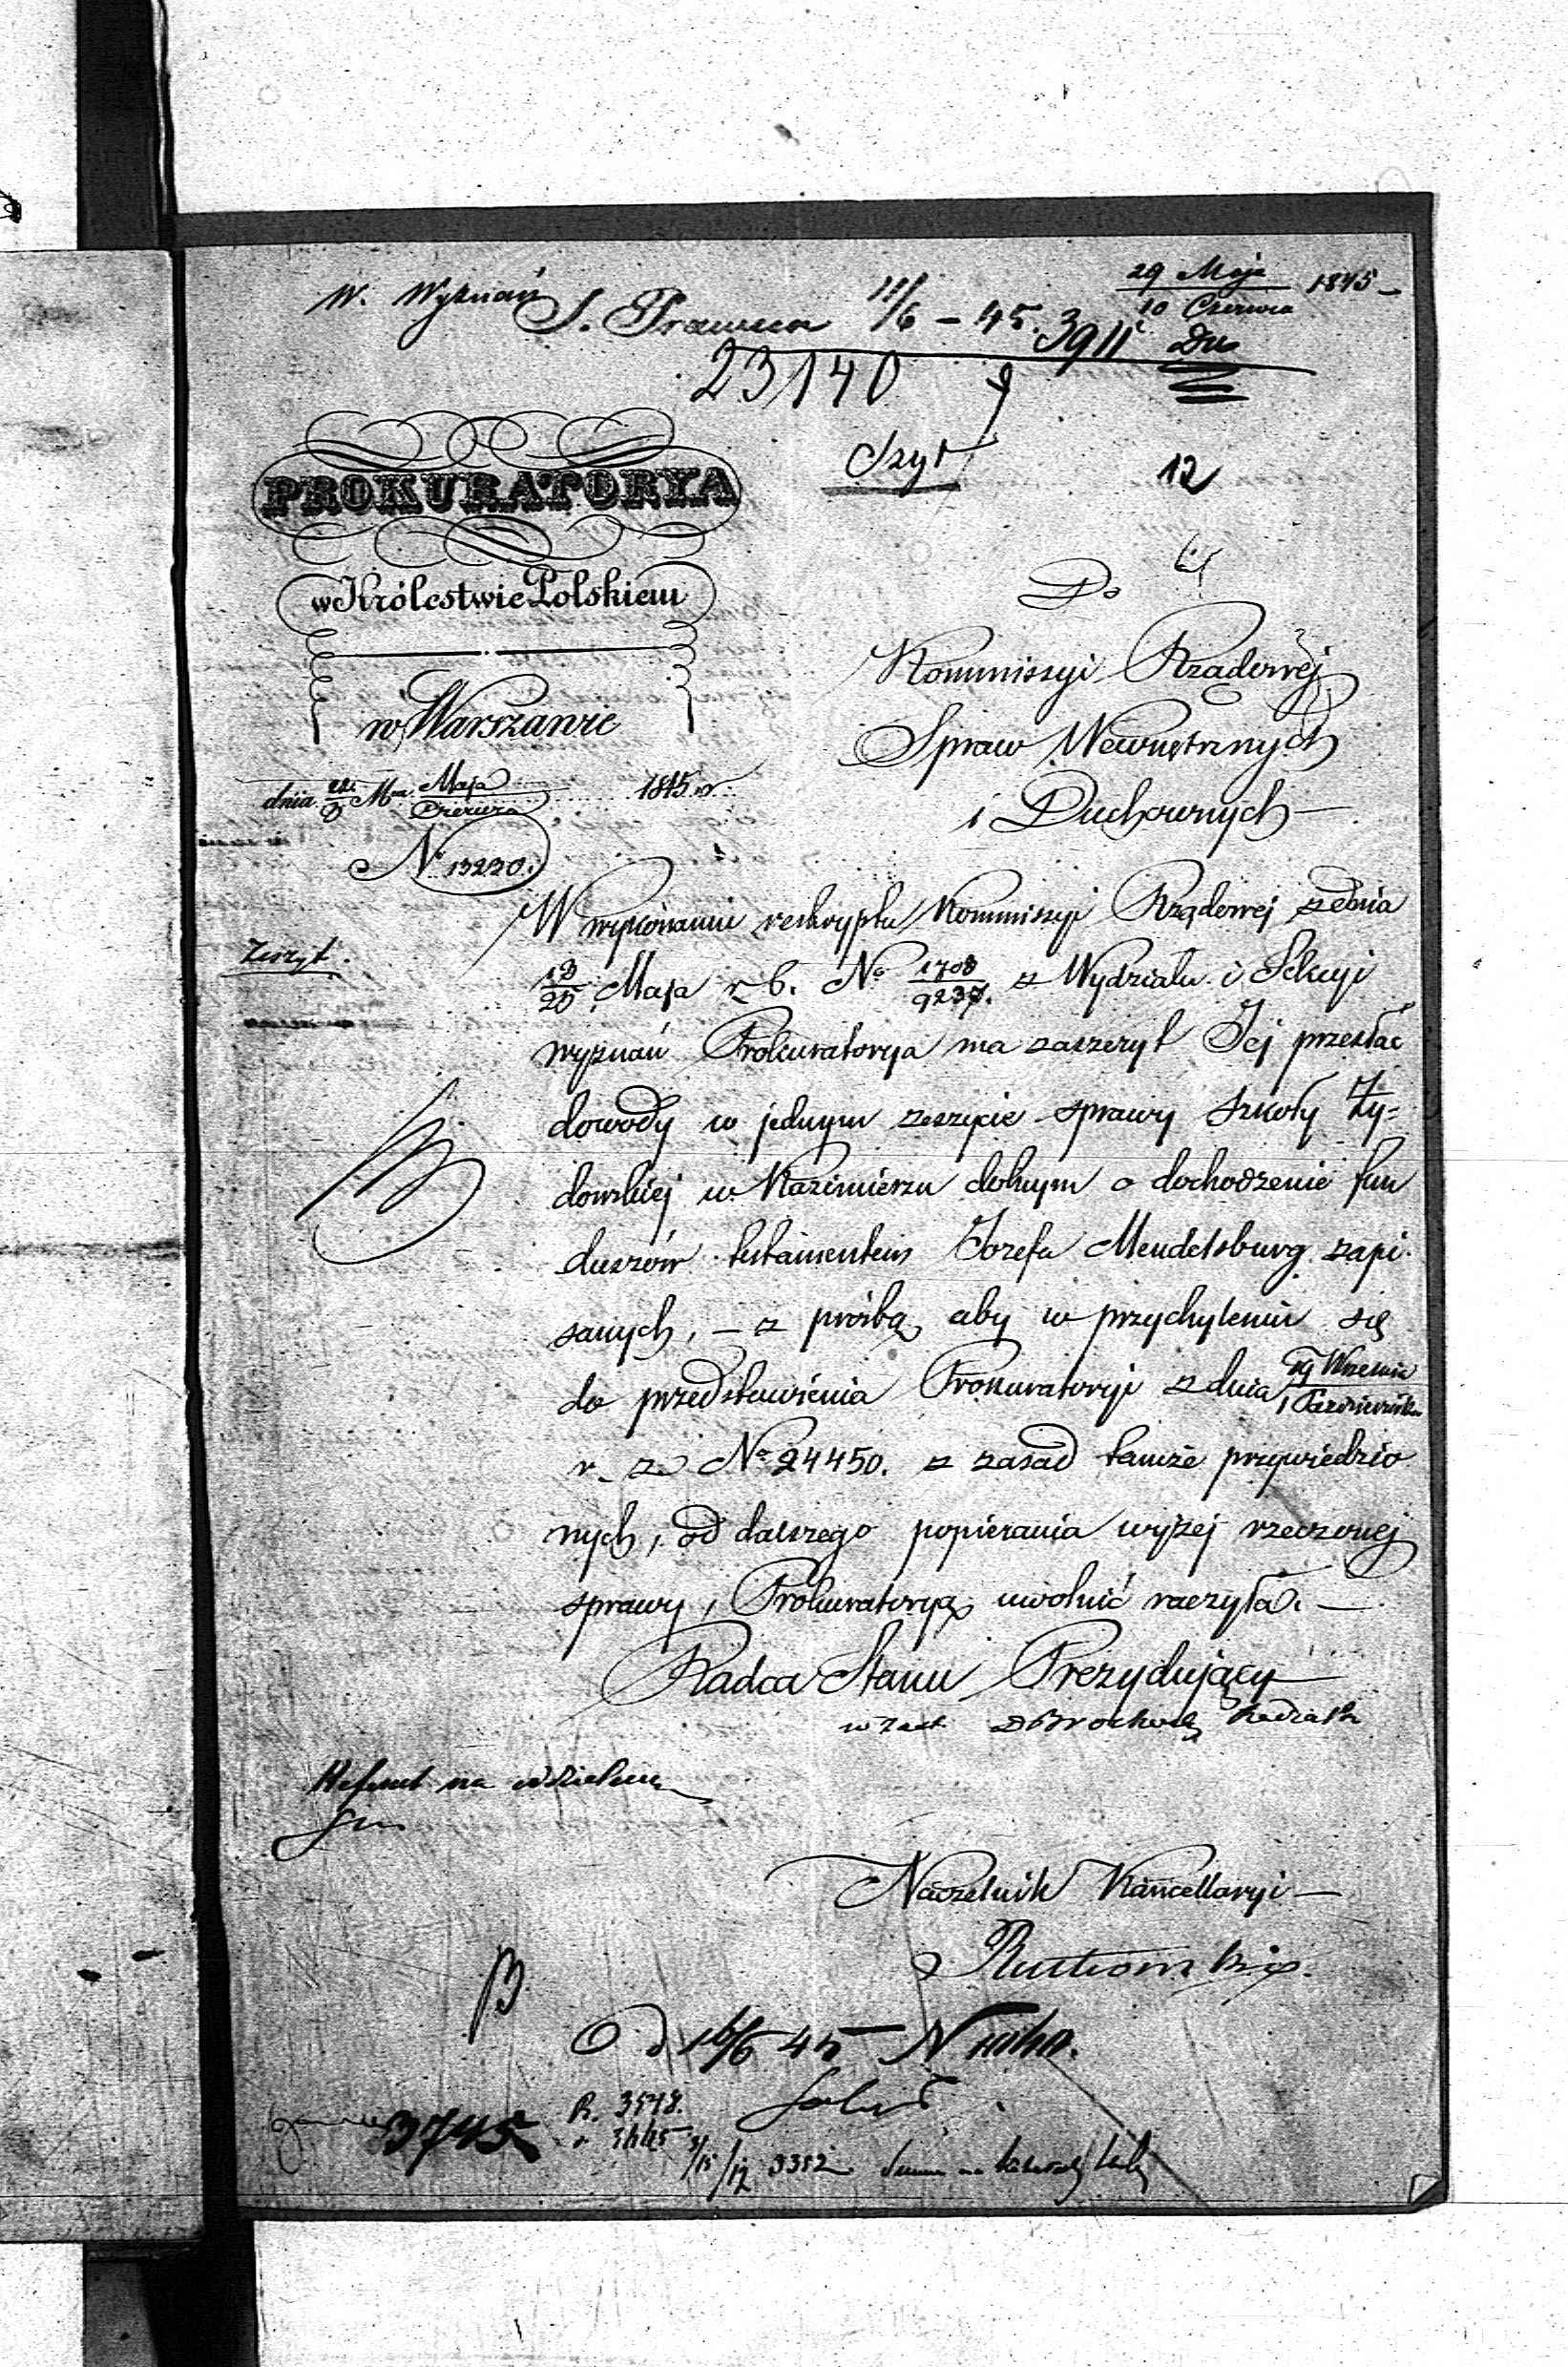 W. Wyznań
S. Prawna 11/6 – 45. 3911
29 Maja
10 Czerwca 1845 –
23140
Szyt
12
PROKURATORYA
w Królestwie Polskiem
w Warszawie
dnia Mca Maja
Czerwca 1845 r.
No 13220.
Zeszyt.
Do
Kommissyi Rządowéj
Spraw Wewnętrznych
i Duchownych –
W wykonaniu reskryptu Kommissyi Rządowej z dnia
13/25 Maja r. b. No 1708/9237. z Wydziału i Sekcyi
wyznań Prokuratorya ma zaszczyt Jej przesłać
dowody w jednym zeszycie sprawy szkoły Ży=
dowskiej w Kazimierzu dolnym o dochodzenie fun
duszów testamentem Jozefa Mendelsburg zapi
sanych, – z prośbą, aby w przychyleniu się
do przedstawienia Prokuratoryi z dnia 19 Września
1 Października
r. z. No 24450. z zasad tamże przywiedzio
nych, od dalszego popierania wyżej rzeczonej
sprawy, Prokuratoryą uwolnić raczyła. –
Radca Stanu Prezydujący
w zast.
Referent na
Naczelnik Kancellaryi –
O d 16/6 45
3745
R. 3578.
3352